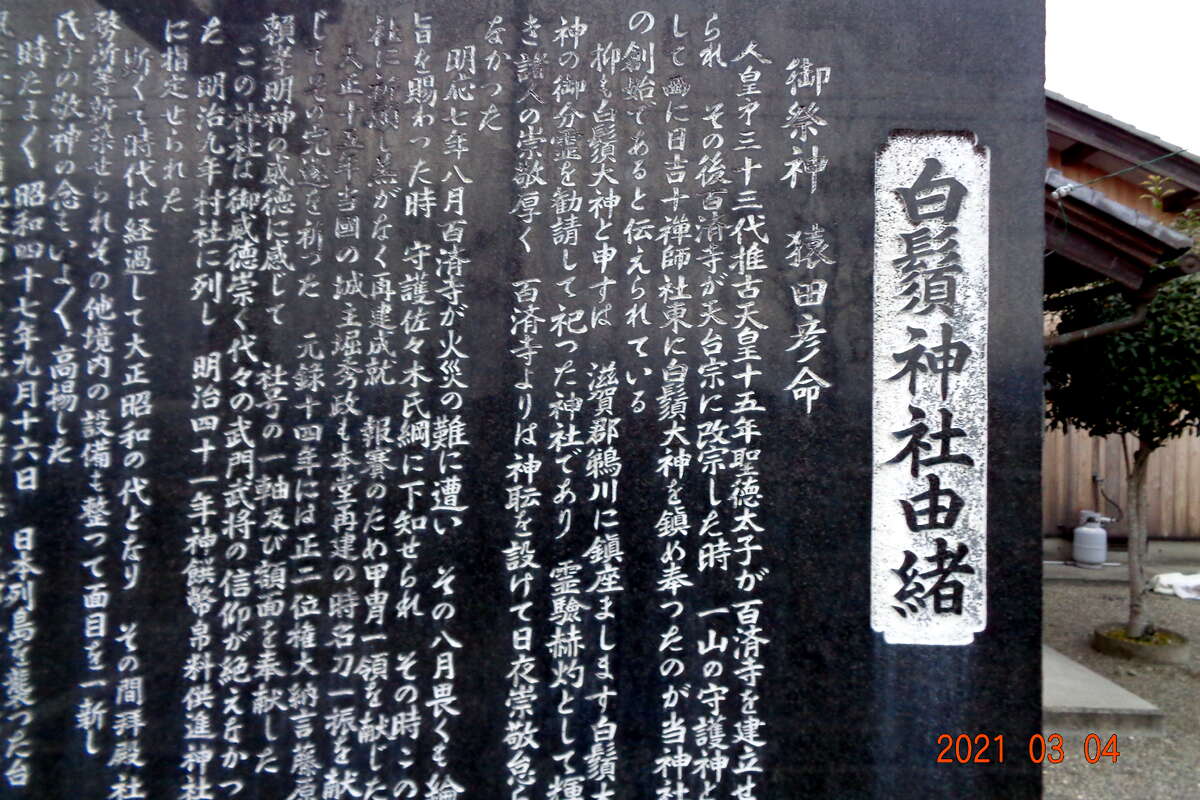 白鬚神社由緒
御祭神 猿田彦命
人皇第三十三代推古天皇十五年聖徳太子が百済寺を建立せ
られ その後百済寺が天台宗に改宗した時 一山の守護神と
して西に日吉十禅師社東に白鬚大神を鎮め奉つたのが当神社
の創始であると伝えられている
抑も白鬚大神と申すは 滋賀郡鵜川に鎮座まします白鬚大
神の御分霊を勧請して祀つた神社であり 霊驗赫灼として輝
き諸人の崇敬厚く 百済寺よりは神䏁を設けて日夜崇敬怠ら
なかつた
明応七年八月百済寺が火災の難に遭い その八月畏くも綸
旨を賜わつた時 守護佐々木氏綱に下知せられ その時この
社に祈願し恙がなく再建成就 報賽のため甲冑一領を献じた
天正十五年当國の城主堀秀政も本堂再建の時名刀一振を献
じてその完遂を祈つた 元録十四年には正二位権大納言藤原
頼孝明神の威徳に感じて 社号の一軸及び額面を奉献した
この神社は御威徳崇く代々の武門武将の信仰が絶えなかつ
た 明治九年村社に列し 明治四十一年神饌幣帛料供進神社
に指定せられた
斯くて時代は経過して大正昭和の代となり その間拝殿社
務所等新築せられその他境内の設備も整つて面目を一新し
氏子の敬神の念もいよ〱高揚した
時たま〱昭和四十七年九月十六日 日本列島を襲つた台
2021 03 04